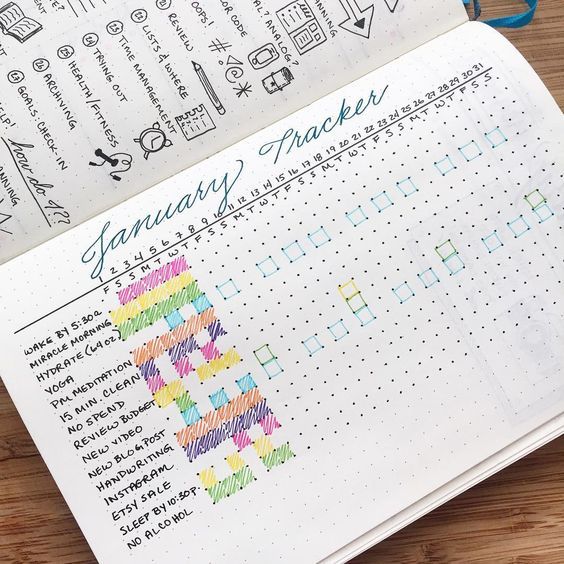 PLANNING
how do I??
GOALS: CHECK-IN
ARCHIVING
HEALTH/FITNESS
TRYING OUT
TIME MANAGEMENT
LISTS & WHERE
REVIEW
OOPS!
OR CODE
ANALOG?
January Tracker
1 2 3 4 5 6 7 8 9 10 11 12 13 14 15 16 17 18 19 20 21 22 23 24 25 26 27 28 29 30 31
F S S M T W T F S S M T W T F S S M T W T F S S M T W T F S S
WAKE BY 5:30A
MIRACLE MORNING
HYDRATE (64 OZ)
YOGA
PM MEDITATION
15 MIN. CLEAN
NO SPEND
REVIEW BUDGET
NEW VIDEO
NEW BLOG POST
HANDWRITING
INSTAGRAM
ETSY SALE
SLEEP BY 10:30P
NO ALCOHOL